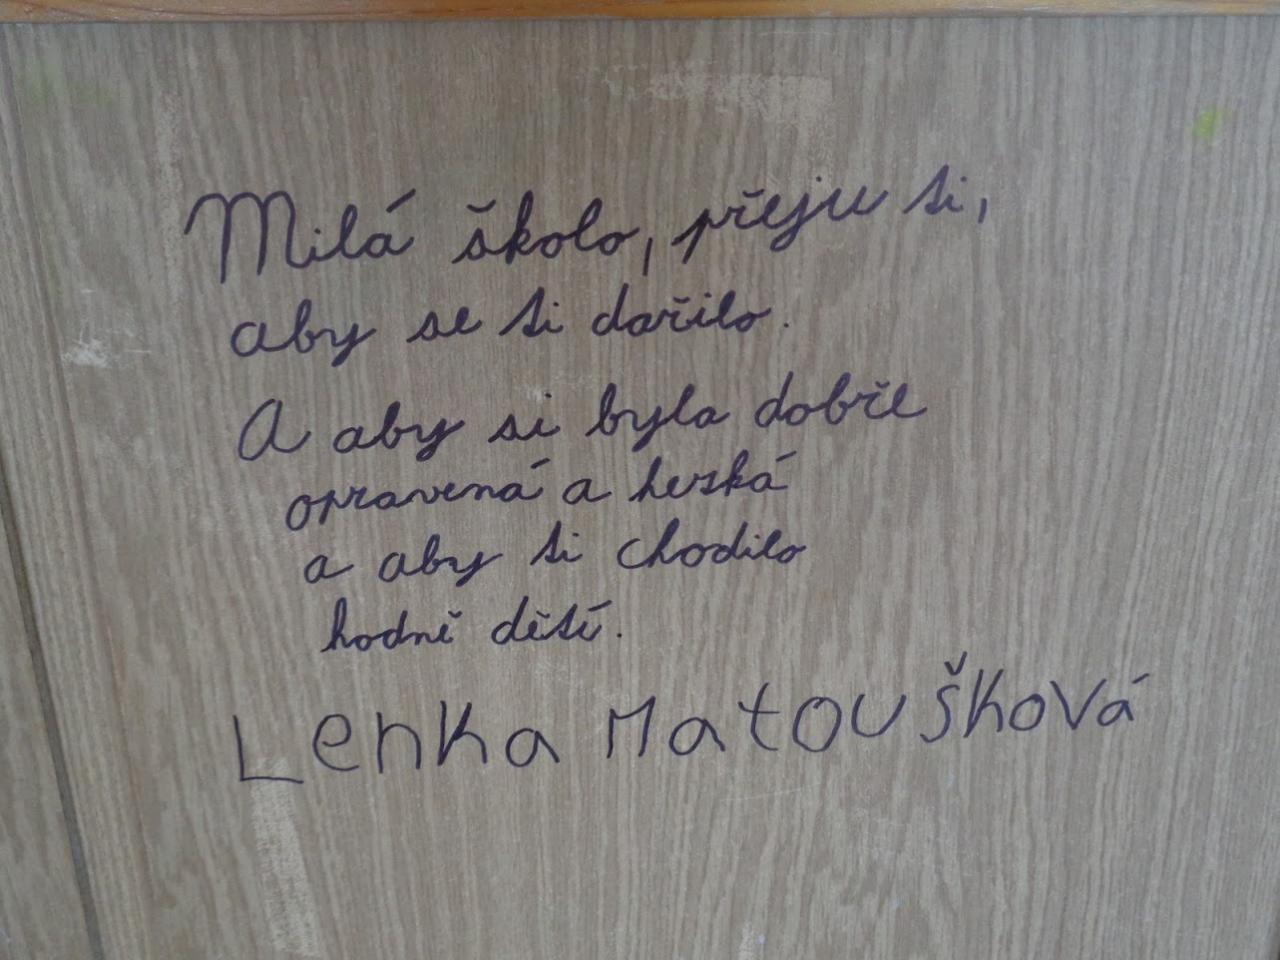 Milá školo, přeju ti,
aby se ti dařilo.
A aby si byla dobře
opravená a hezká
a aby ti chodilo
hodně dětí.
Lenka Matoušková